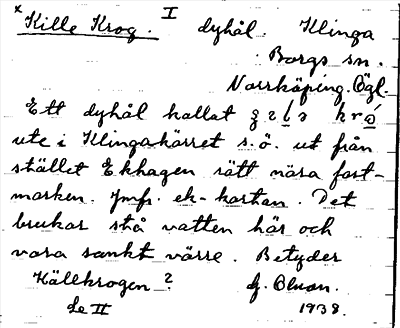 × Kille Krog. I dyhål. Klinga
Borgs sn.
Norrköping. Ögl.
Ett dyhål kallat
ute i Klingakärret s.ö. ut från
stället Ekhagen rätt nära fast-
marken. Jmfr. ek-kartan. Det
brukar stå vatten här och
vara sankt värre. Betyder
Källkrogen? G. Olson.
Se II 1938.